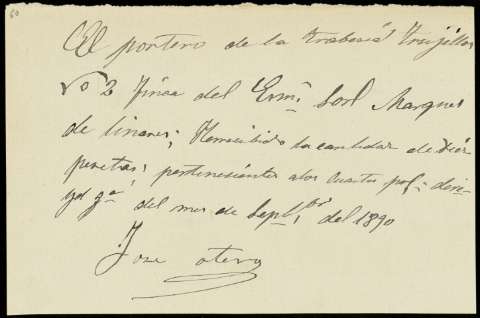 60
El portero de la trabesía Trujillos
No 2 finca del Exmº Sor Marques
de linares; He recibido la cantidad de diez
pesetas; pertenesientes a los cuartos
del mes de Sepbre del 1890
Jose otero